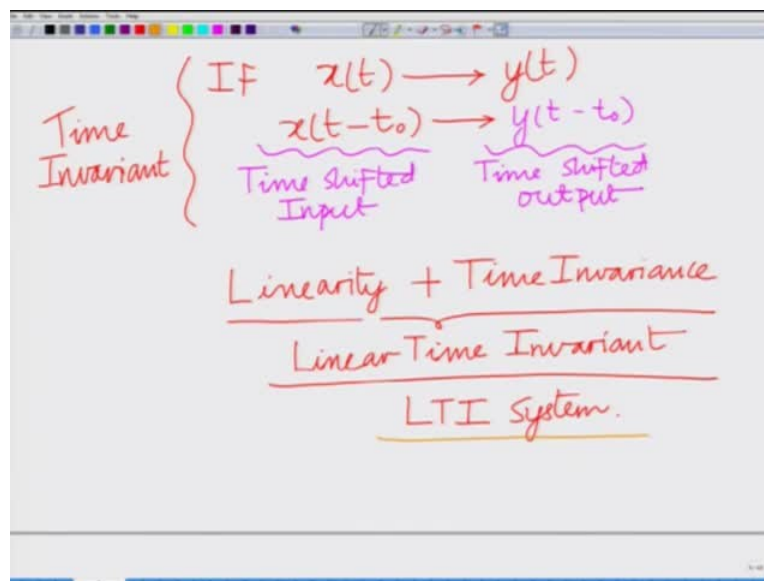 IF x(t) ⟶ y(t)
Time Invariant
x(t-t₀) ⟶ y(t-t₀)
Time shifted Input
Time shifted output
Linearity + Time Invariance
Linear Time Invariant
LTI System.